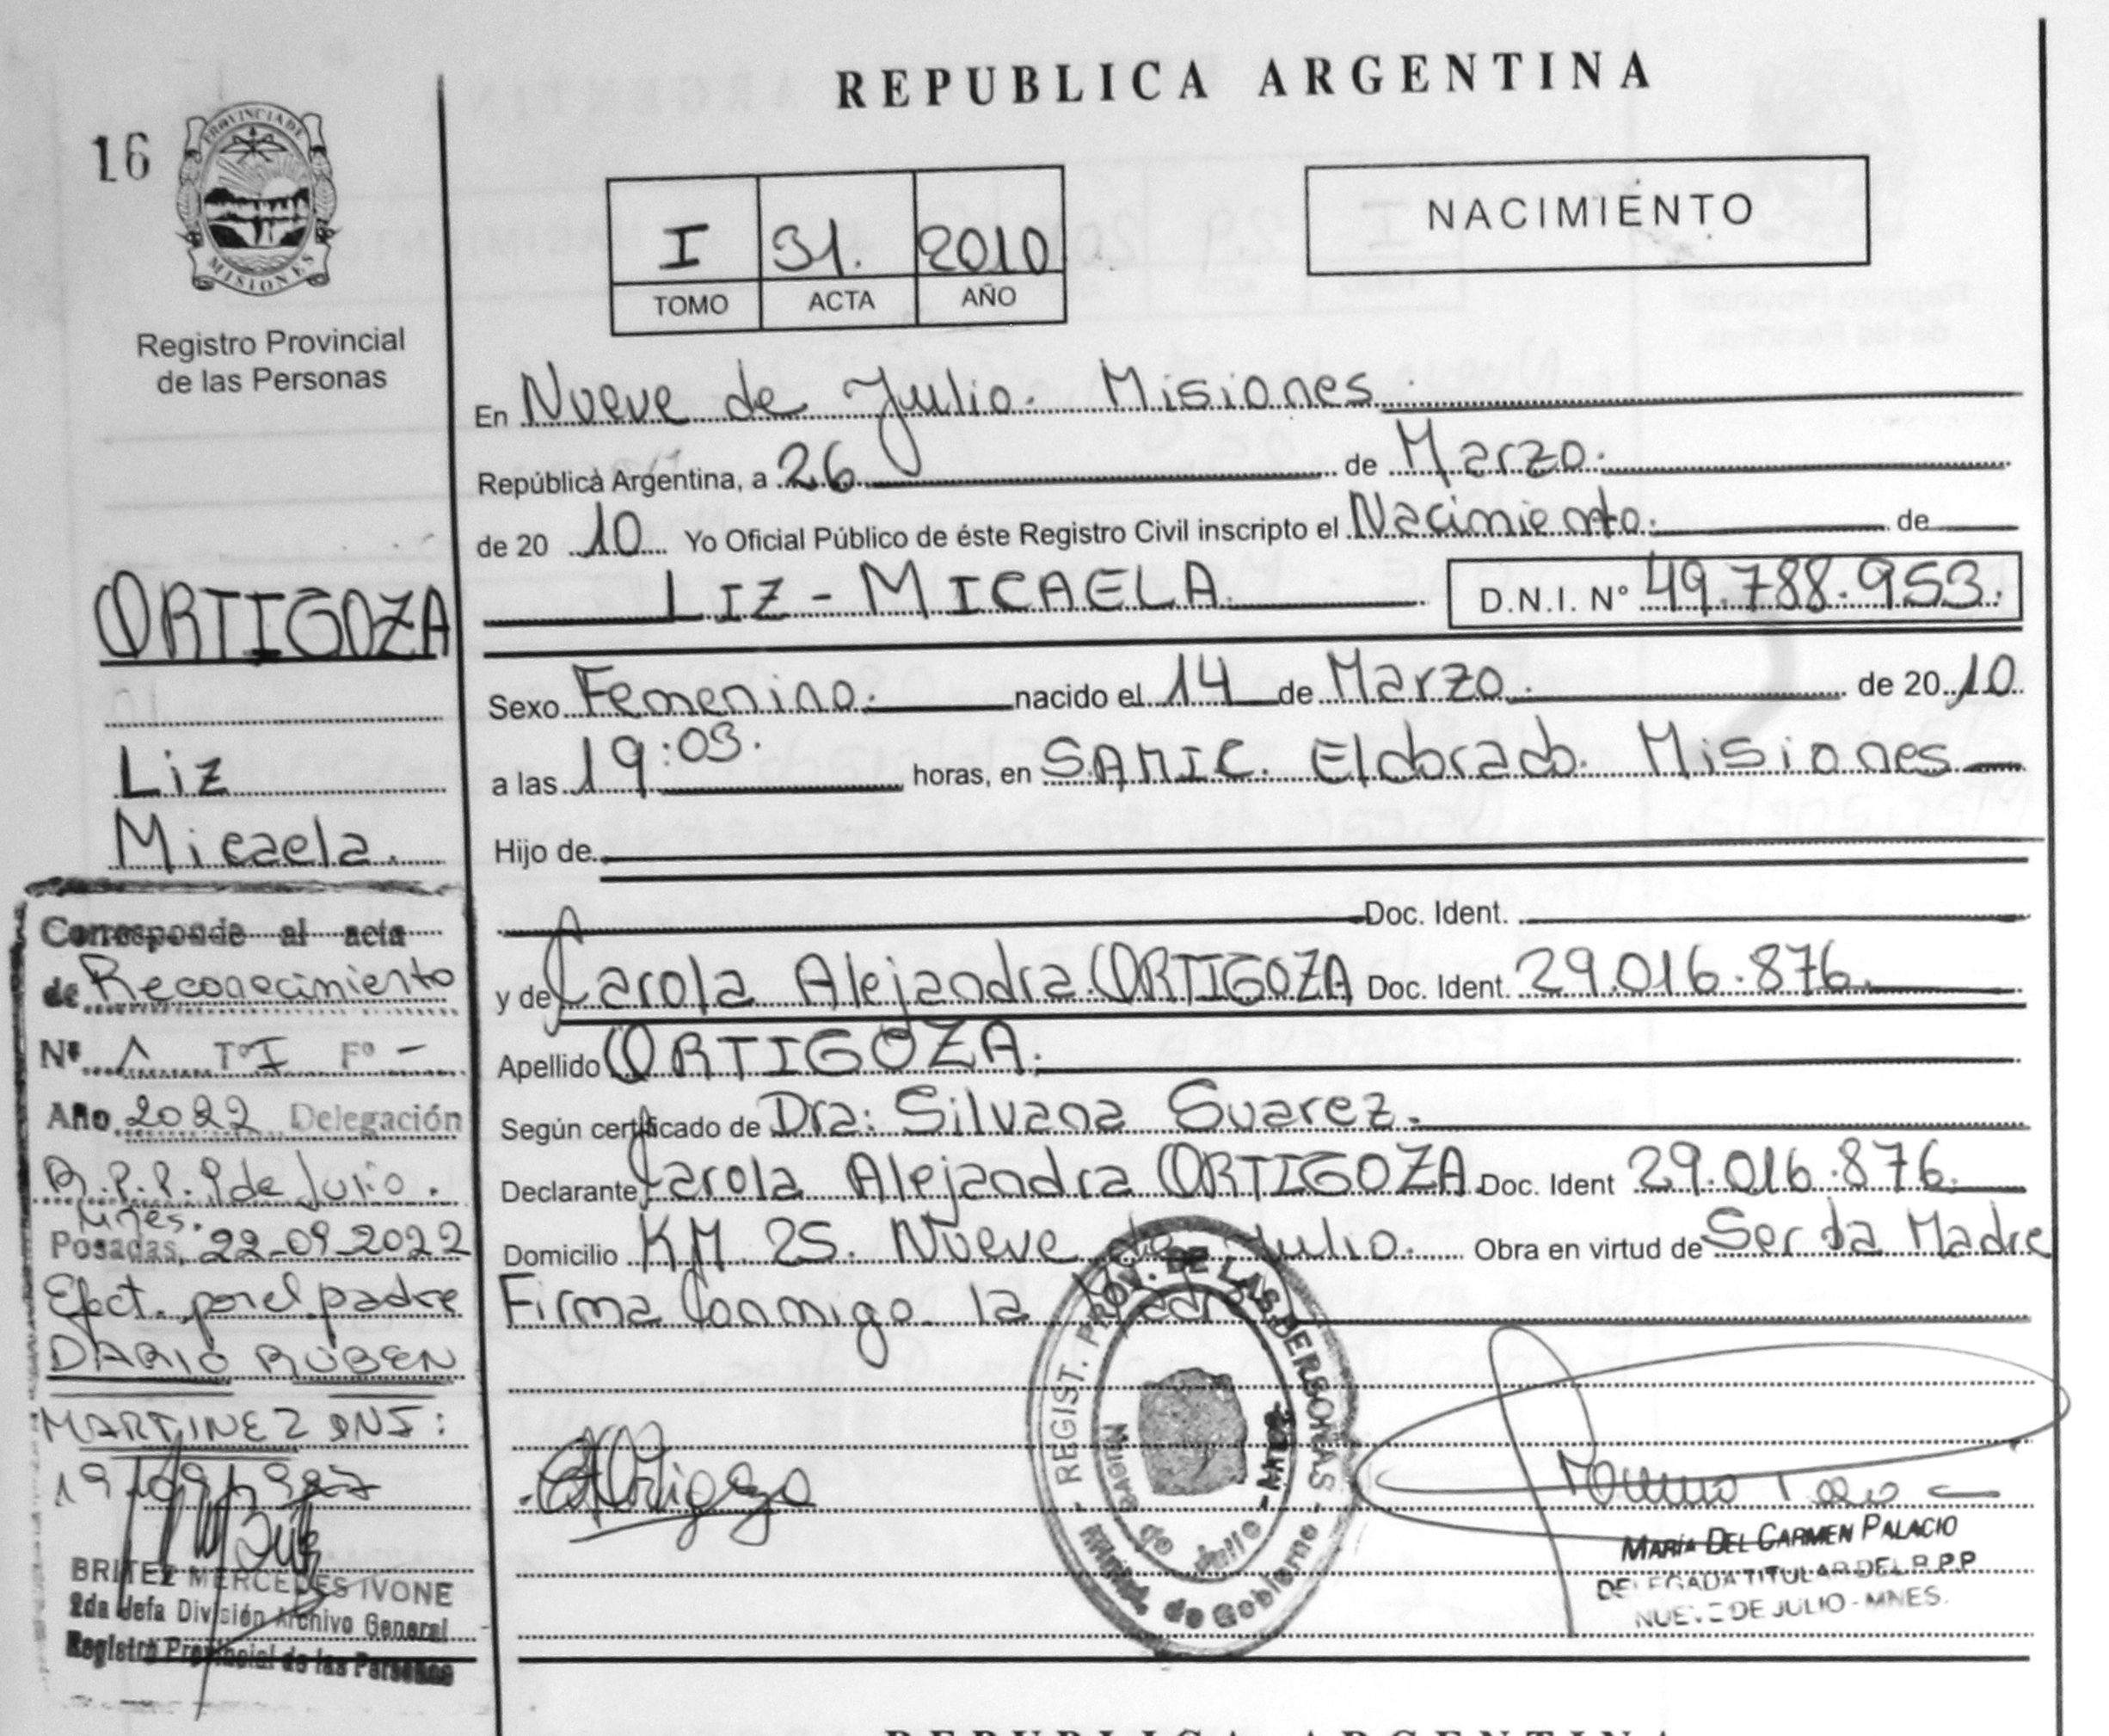 REPUBLICA ARGENTINA
16
PROVINCIA DE
MISIONES
Registro Provincial
de las Personas
I 31. 2010
TOMO ACTA AÑO
NACIMIENTO
En Nueve de Julio. Misiones
República Argentina, a 26 de Marzo.
de 20 10 Yo Oficial Público de éste Registro Civil inscripto el Nacimiento. de
LIZ - MICAELA D.N.I. Nº 49.788.953.
ORTIGOZA
Liz
Micaela.
Sexo Femenino. nacido el 14 de Marzo. de 20 10
a las 19:03. horas, en SAMIC. Eldorado. Misiones
Hijo de
Doc. Ident.
y de Carola Alejandra ORTIGOZA Doc. Ident. 29.016.876.
Apellido ORTIGOZA.
Según certificado de Dra: Silvana Suarez.
Declarante Carola Alejandra ORTIGOZA Doc. Ident 29.016.876.
Domicilio KM 25. Nueve de Julio. Obra en virtud de Ser la Madre
Firma Conmigo la Madre
Corresponde al acta
de Reconocimiento
Nº 1 Tº I Fº -
Año 2022 Delegación
R.P.P. 9 de Julio.
Mnes.
Posadas, 22-09-2022
Efect. por el padre
DARIO RUBEN
MARTINEZ DNI:
BRITEZ MERCEDES IVONE
2da Jefa División Archivo General
Registro Provincial de las Personas
REGIST. PROV. DE LAS PERSONAS
Nueve de Julio - Mnes.
Minist. de Gobierno
MARÍA DEL CARMEN PALACIO
DELEGADA TITULAR DEL R.P.P
NUEVE DE JULIO - MNES.
REPUBLICA ARGENTINA